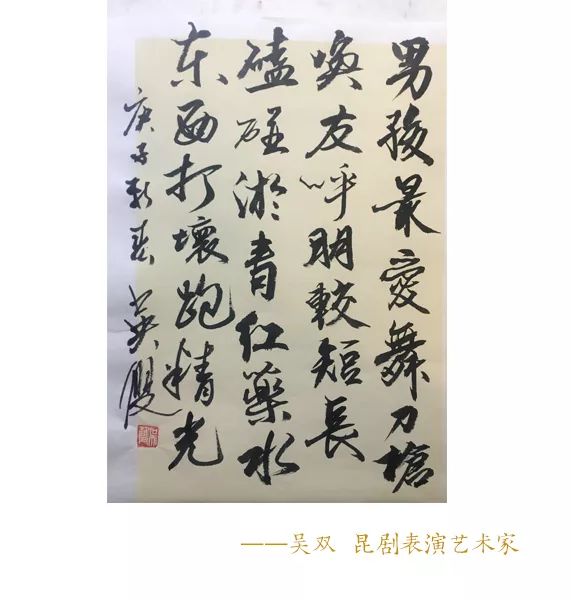 男孩最愛舞刀槍
喚友呼朋較短長
磕碰淤青红藥水
东西打壞跑精光
庚子新春 吴雙
——吴双 昆剧表演艺术家